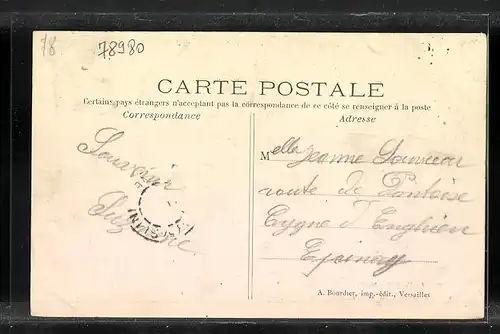 78
78980
CARTE POSTALE
Certains pays étrangers n'acceptant pas la correspondance de ce côté se renseigner à la poste
Correspondance
Adresse
Souvenir
Suzanne
Melle Jeanne
route de Pontoise
Cygne d'Enghien
Epinay
A. Bourdier, imp.-édit., Versailles